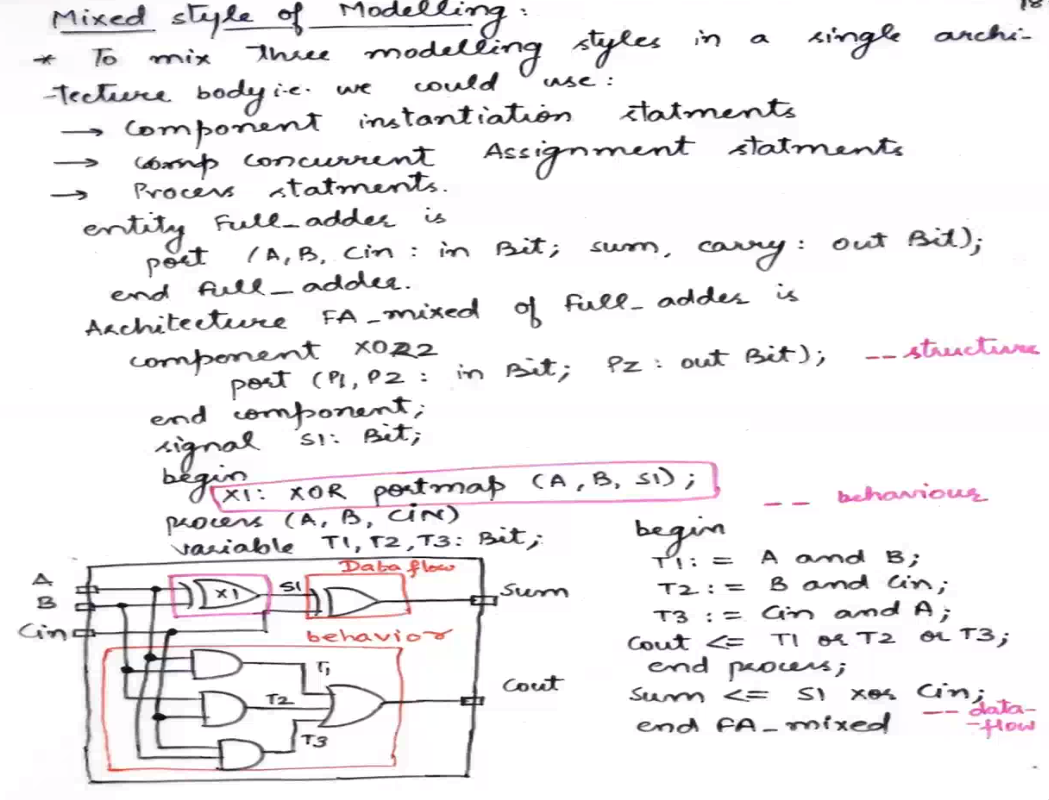 18
Mixed style of Modelling:
* To mix three modelling styles in a single archi-
-tecture body i.e. we could use:
→ Component instantiation statments
→ concurrent Assignment statments
→ Process statments.
entity Full_adder is
port (A, B, Cin : in Bit; sum, carry : out Bit);
end full_adder.
Architecture FA_mixed of Full_adder is
component XOR2
port (P1, P2 : in Bit; PZ : out Bit); -- structure
end component;
signal S1: Bit;
begin
X1: XOR portmap (A, B, S1);
-- behaviour
process (A, B, CIN)
variable T1, T2, T3: Bit;
begin
T1: = A and B;
T2: = B and Cin;
T3 : = Cin and A;
Cout <= T1 or T2 or T3;
end process;
Sum <= S1 xor Cin;
-- data-
-flow
end FA_mixed
Data flow
A
B
Cin
X1
S1
Sum
behavior
T1
T2
T3
Cout